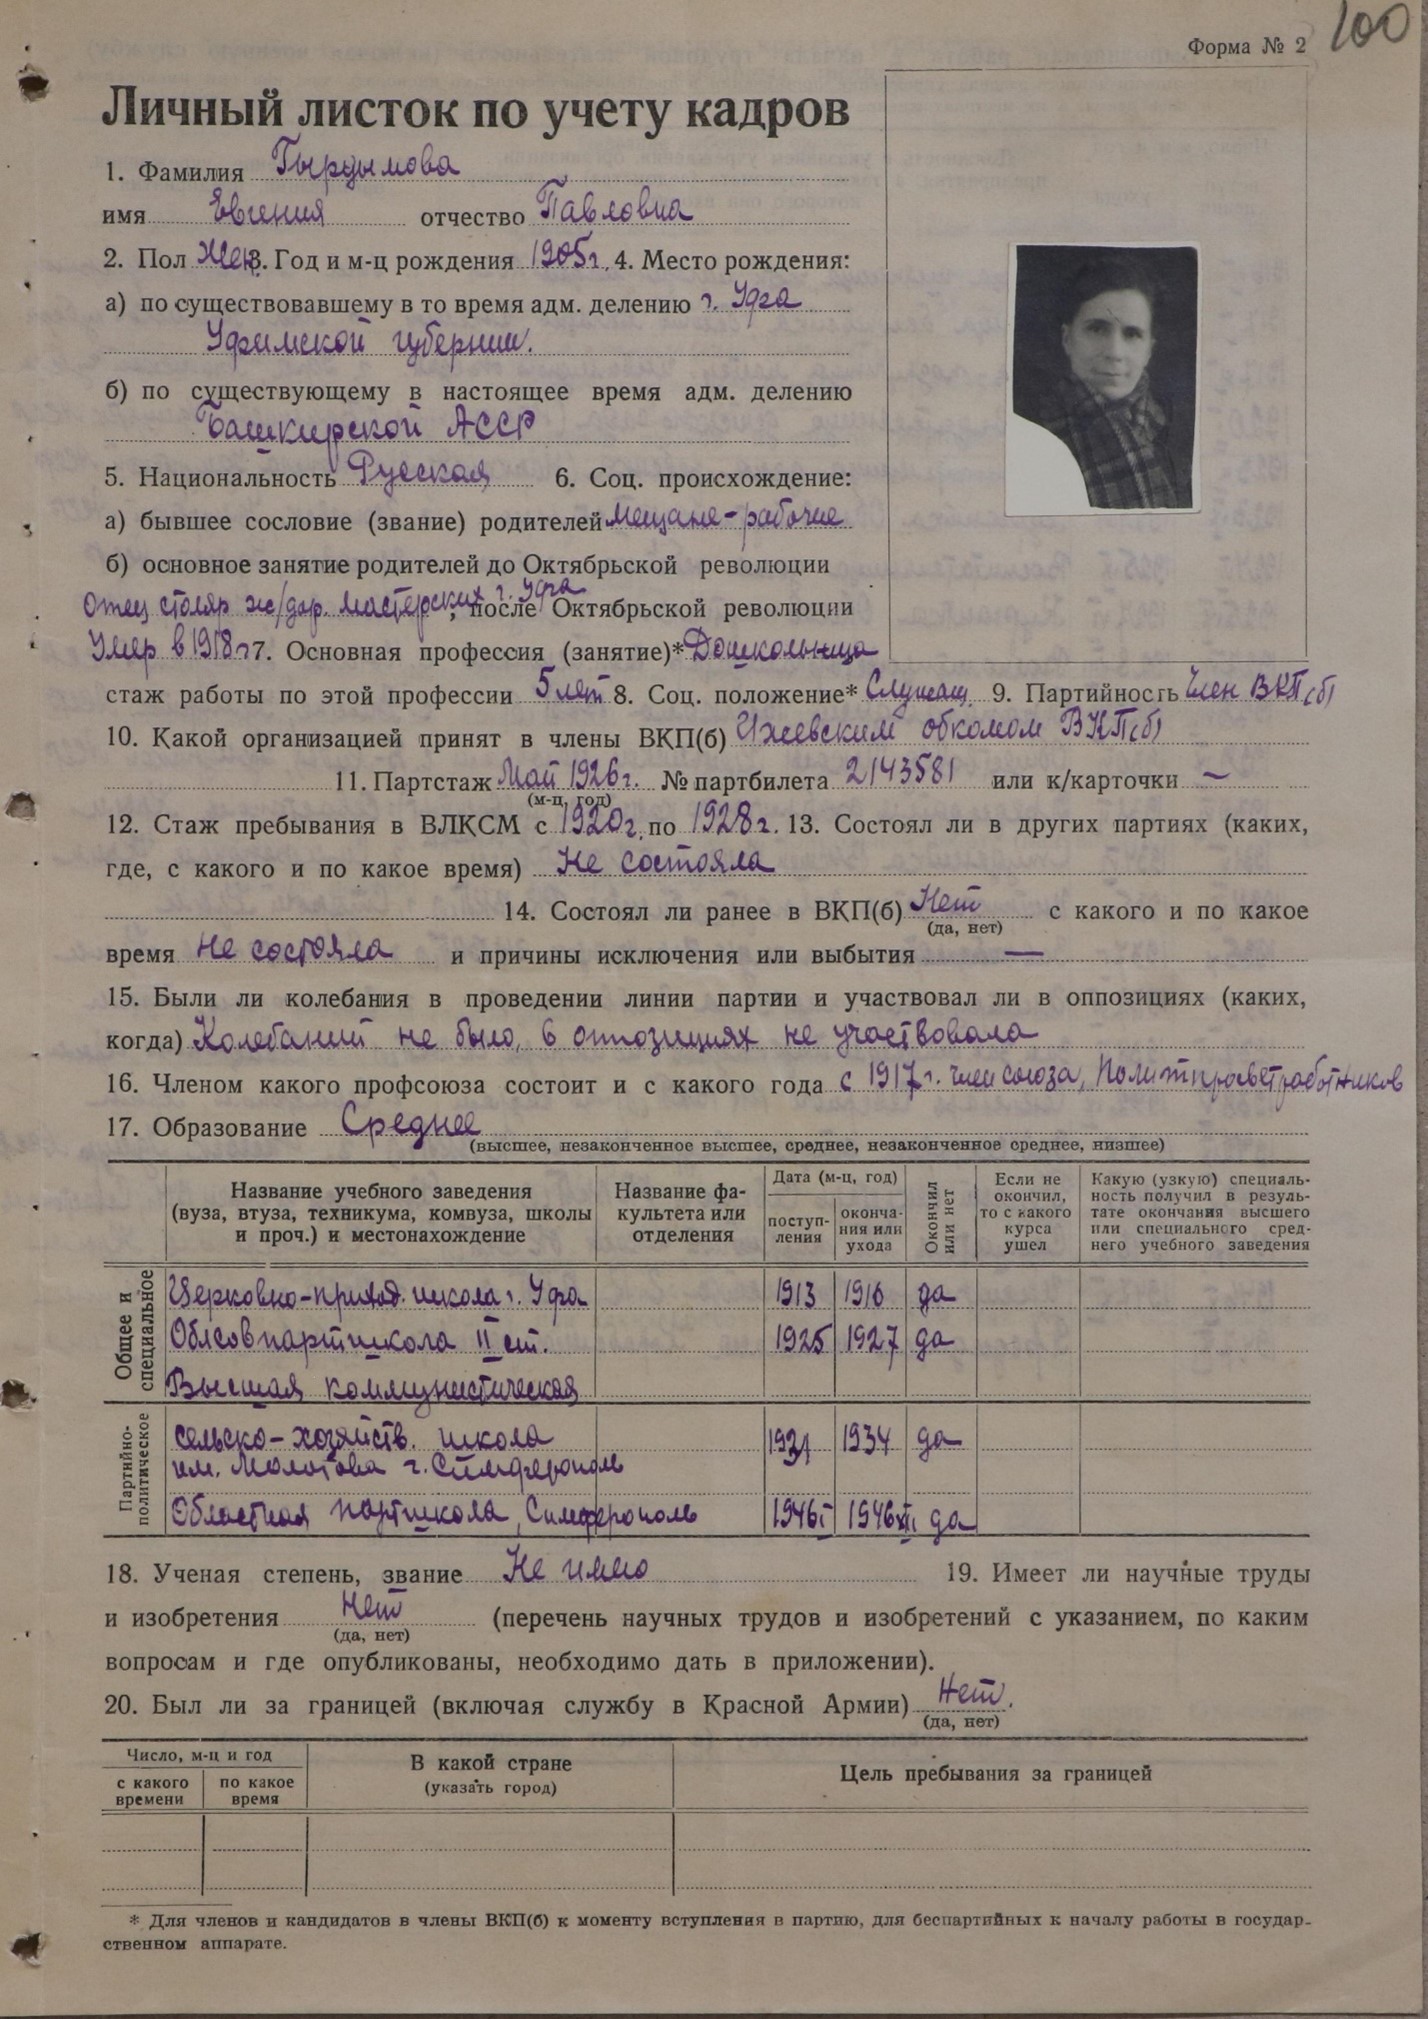 Форма № 2
100
Личный листок по учету кадров
1. Фамилия Гырдымова
имя Евгения отчество Павловна
2. Пол Жен 3. Год и м-ц рождения 1905 г. 4. Место рождения:
а) по существовавшему в то время адм. делению г. Уфа
Уфимской губернии.
б) по существующему в настоящее время адм. делению
Башкирской АССР
5. Национальность Русская 6. Соц. происхождение:
а) бывшее сословие (звание) родителей Мещане-рабочие
б) основное занятие родителей до Октябрьской революции
Отец столяр ж/дор. мастерских г. Уфа, после Октябрьской революции
Умер в 1918 г 7. Основная профессия (занятие)* Дошкольница
стаж работы по этой профессии 5 лет 8. Соц. положение* Служащ. 9. Партийность Член ВКП(б)
10. Какой организацией принят в члены ВКП(б) Ижевским обкомом ВКП(б)
11. Партстаж Май 1926 г. № партбилета 2143581 или к/карточки —
(м-ц, год)
12. Стаж пребывания в ВЛКСМ с 1920 г. по 1928 г. 13. Состоял ли в других партиях (каких,
где, с какого и по какое время) Не состояла
14. Состоял ли ранее в ВКП(б) Нет с какого и по какое
(да, нет)
время не состояла и причины исключения или выбытия —
15. Были ли колебания в проведении линии партии и участвовал ли в оппозициях (каких,
когда) Колебаний не было, в оппозициях не участвовала
16. Членом какого профсоюза состоит и с какого года с 1917 г. член союза, Политпросветработников
17. Образование Среднее
(высшее, незаконченное высшее, среднее, незаконченное среднее, низшее)
Название учебного заведения (вуза, втуза, техникума, комвуза, школы и проч.) и местонахождение
Название факультета или отделения
Дата (м-ц, год)
поступления
окончания или ухода
Окончил или нет
Если не окончил, то с какого курса ушел
Какую (узкую) специальность получил в результате окончания высшего или специального среднего учебного заведения
Общее и специальное
Церковно-приход. школа г. Уфа 1913 1916 да
Облсовпартшкола II ст. 1925 1927 да
Высшая коммунистическая
Партийно-политическое
сельско-хозяйств. школа 1931 1934 да
им. Молотова г. Симферополь
Областная партшкола, Симферополь 1946 I 1946 XI да
18. Ученая степень, звание Не имею 19. Имеет ли научные труды
и изобретения Нет (перечень научных трудов и изобретений с указанием, по каким
(да, нет)
вопросам и где опубликованы, необходимо дать в приложении).
20. Был ли за границей (включая службу в Красной Армии) Нет.
(да, нет)
Число, м-ц и год
с какого времени
по какое время
В какой стране
(указать город)
Цель пребывания за границей
* Для членов и кандидатов в члены ВКП(б) к моменту вступления в партию, для беспартийных к началу работы в государ-
ственном аппарате.